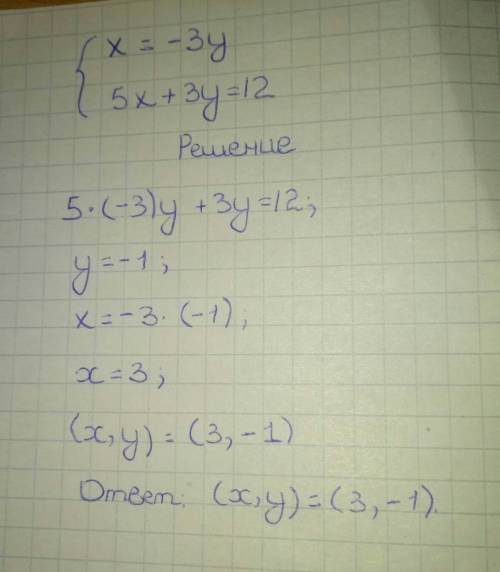 x = -3y
5x + 3y = 12
Решение
5 · (-3)y + 3y = 12;
y = -1;
x = -3 · (-1);
x = 3;
(x, y) = (3, -1)
Ответ: (x, y) = (3, -1).